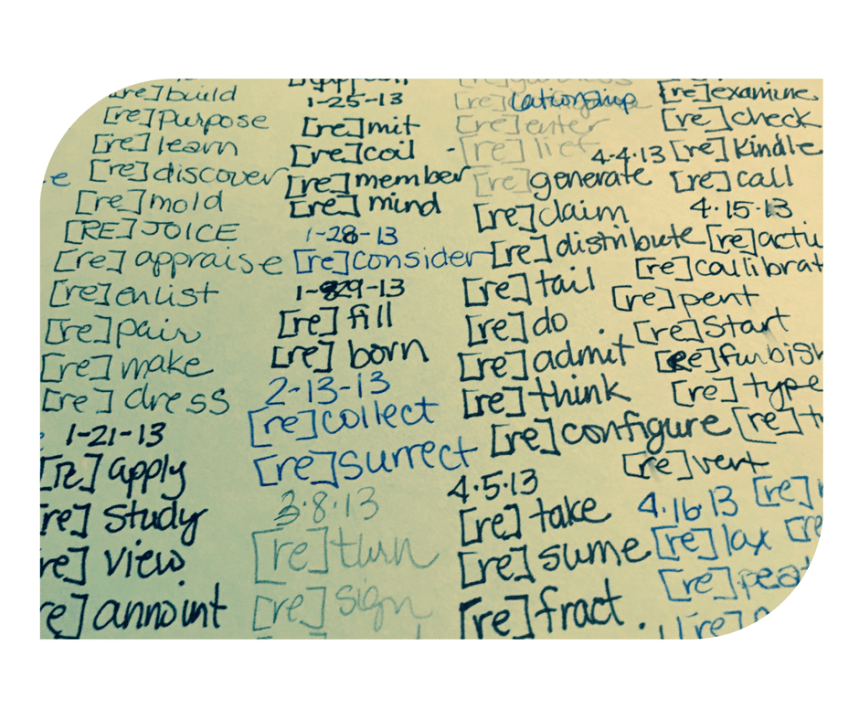 [re]build
[re]purpose
[re]learn
[re]discover
[re]mold
[RE]JOICE
[re]appraise
[re]enlist
[re]pair
[re]make
[re]dress
1-21-13
[re]apply
[re]study
[re]view
[re]annoint
1-25-13
[re]mit
[re]coil
[re]member
[re]mind
1-28-13
[re]consider
1-29-13
[re]fill
[re]born
2-13-13
[re]collect
[re]surrect
3·8·13
[re]turn
[re]sign
[re]lationship
[re]enter
-[re]lief
4-4-13
[re]generate
[re]claim
[re]distribute
[re]tail
[re]do
[re]admit
[re]think
[re]configure
4·5·13
[re]take
[re]sume
[re]fract.
[re]examine
[re]check
[re]kindle
[re]call
4·15·13
[re]actu
[re]callibrat
[re]pent
[re]start
[re]furbish
[re]type
[re]
[re]vert
4·16·13 [re]
[re]lax [re
[re]peat
[re]